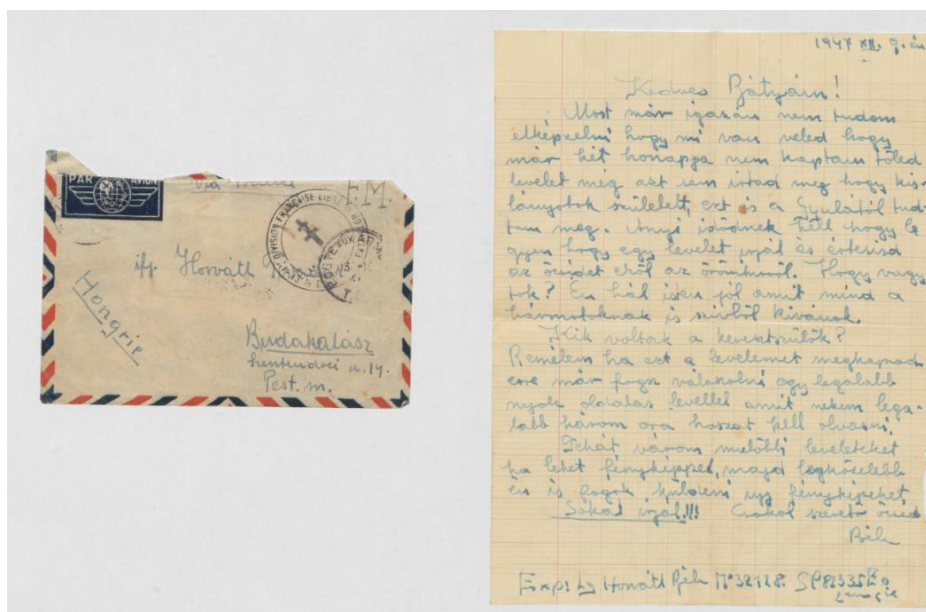 PAR AVION
via France
F.M.
DIVISION FRANÇAISE LIBRE
ifj. Horváth
Hongrie
Budakalász
Szentendrei u. 14.
Pest. m.
1947 XII. 9.én
Kedves Bátyám!
Most már igazán nem tudom
elképzelni hogy mi van veled hogy
már hét honapja nem kaptam tőled
levelet még azt sem irtad meg hogy kis-
lányotok született, ezt is a Gyulától tud-
tam meg. Annyi időnek kell hogy le
gyen hogy egy levelet irjál és értesisd
az öcsédet erről az örömhirről. Hogy vagy
tok? Én hál isten jól amit mind a
hármotoknak is szivből kivánok.
Kik voltak a keresztszülők?
Remélem ha ezt a levelemet megkapod
erre már fogsz válaszolni egy legalább
nyolc oldalas levéllel amit nekem lega-
labb három ora hoszat kell olvasni.
Tehát várom mielőbbi leveleteket
ha lehet fényképpel, majd legközelebb
én is fogok küldeni uj fényképeket
Sokat irjál!!! Csokol szerető öcséd
Béla
Exp: Lg Horváth Béla Mº 32128. SP 82335